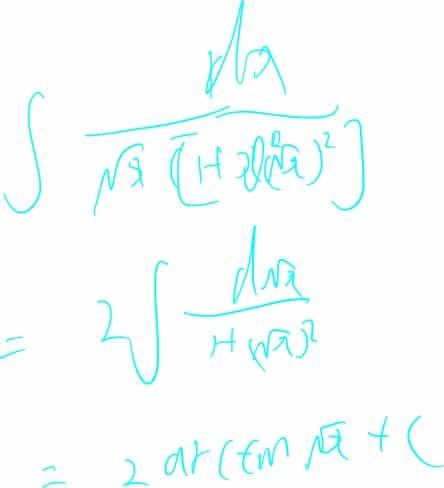 ∫ dx / √x [1+(√x)²]
= 2∫ d√x / 1+(√x)²
= 2 arctan √x + C